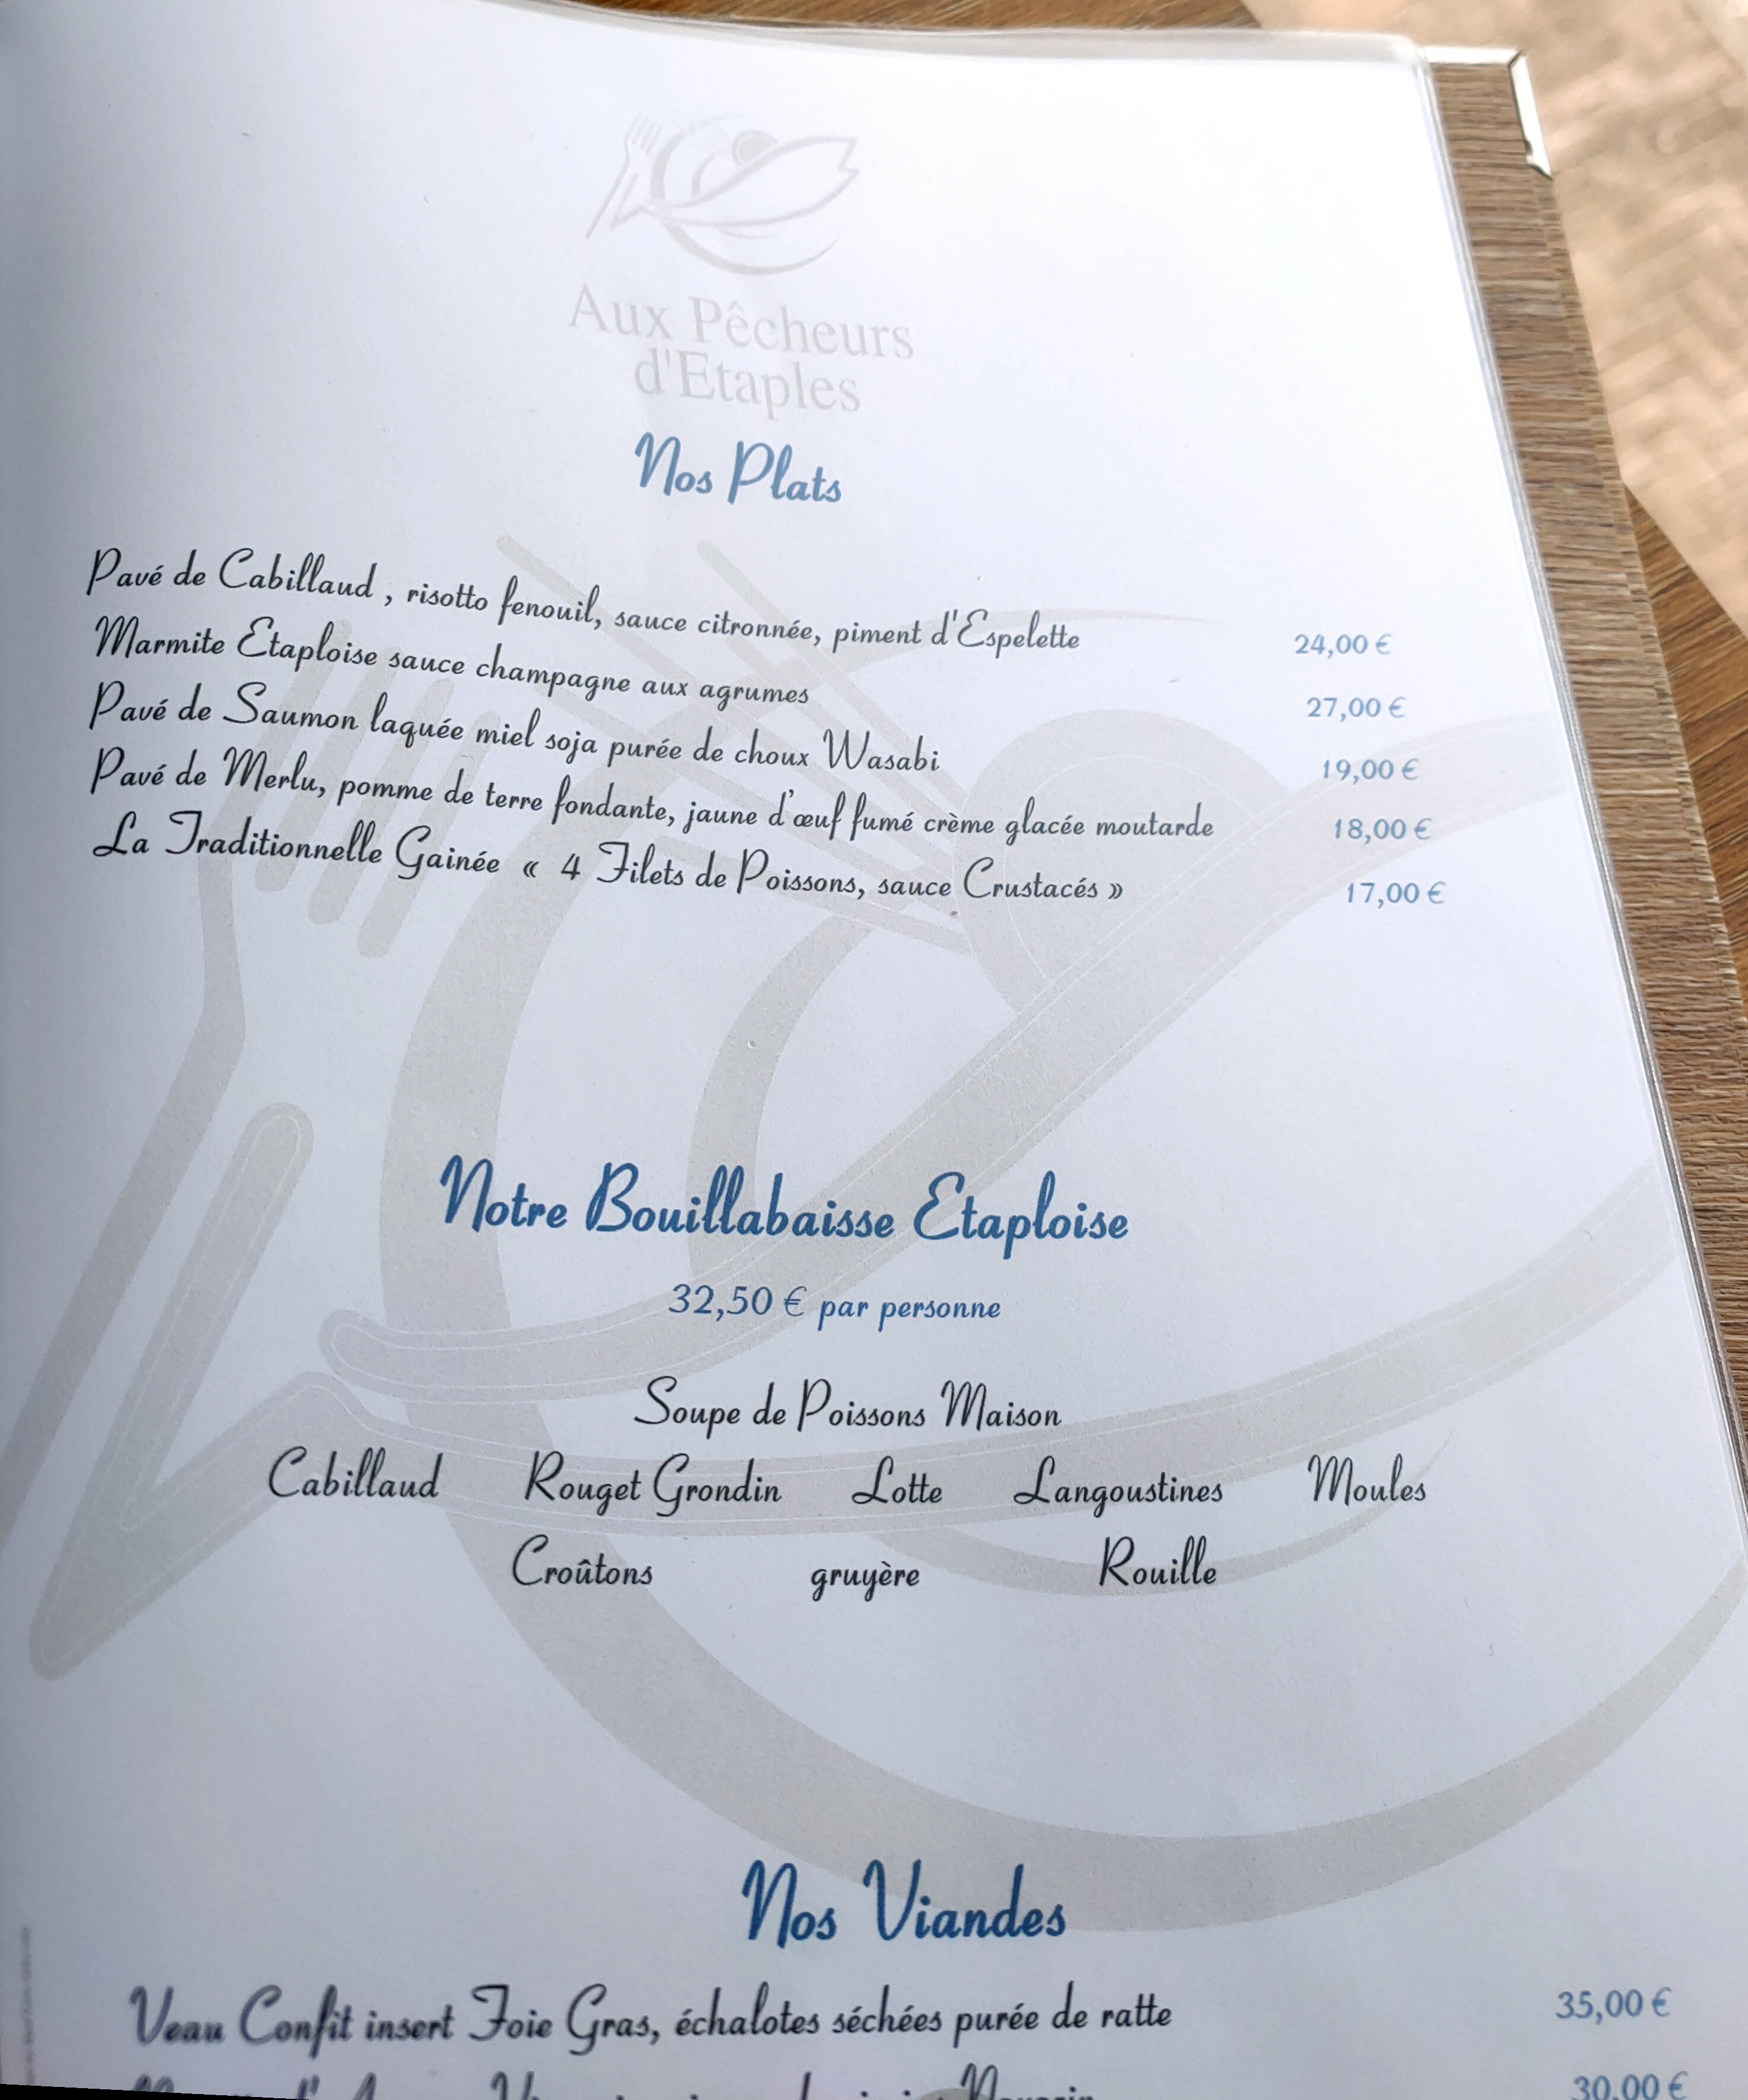 Aux Pêcheurs
d'Etaples
Nos Plats
Pavé de Cabillaud , risotto fenouil, sauce citronnée, piment d'Espelette 24,00 €
Marmite Etaploise sauce champagne aux agrumes 27,00 €
Pavé de Saumon laquée miel soja purée de choux Wasabi 19,00 €
Pavé de Merlu, pomme de terre fondante, jaune d'œuf fumé crème glacée moutarde 18,00 €
La Traditionnelle Gainée « 4 Filets de Poissons, sauce Crustacés » 17,00 €
Notre Bouillabaisse Etaploise
32,50 € par personne
Soupe de Poissons Maison
Cabillaud Rouget Grondin Lotte Langoustines Moules
Croûtons gruyère Rouille
Nos Viandes
Veau Confit insert Foie Gras, échalotes séchées purée de ratte 35,00 €
30,00 €